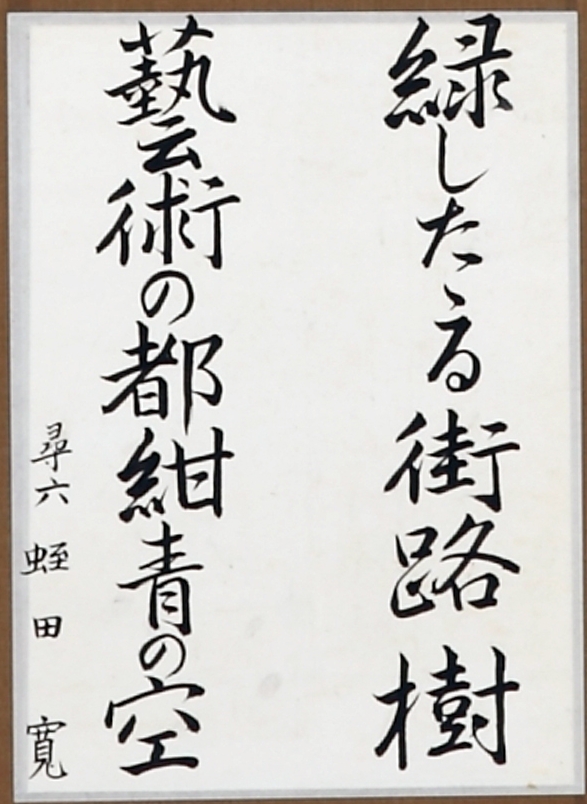 緑したゝる街路樹
藝術の都紺青の空
尋六 蛭田 寛